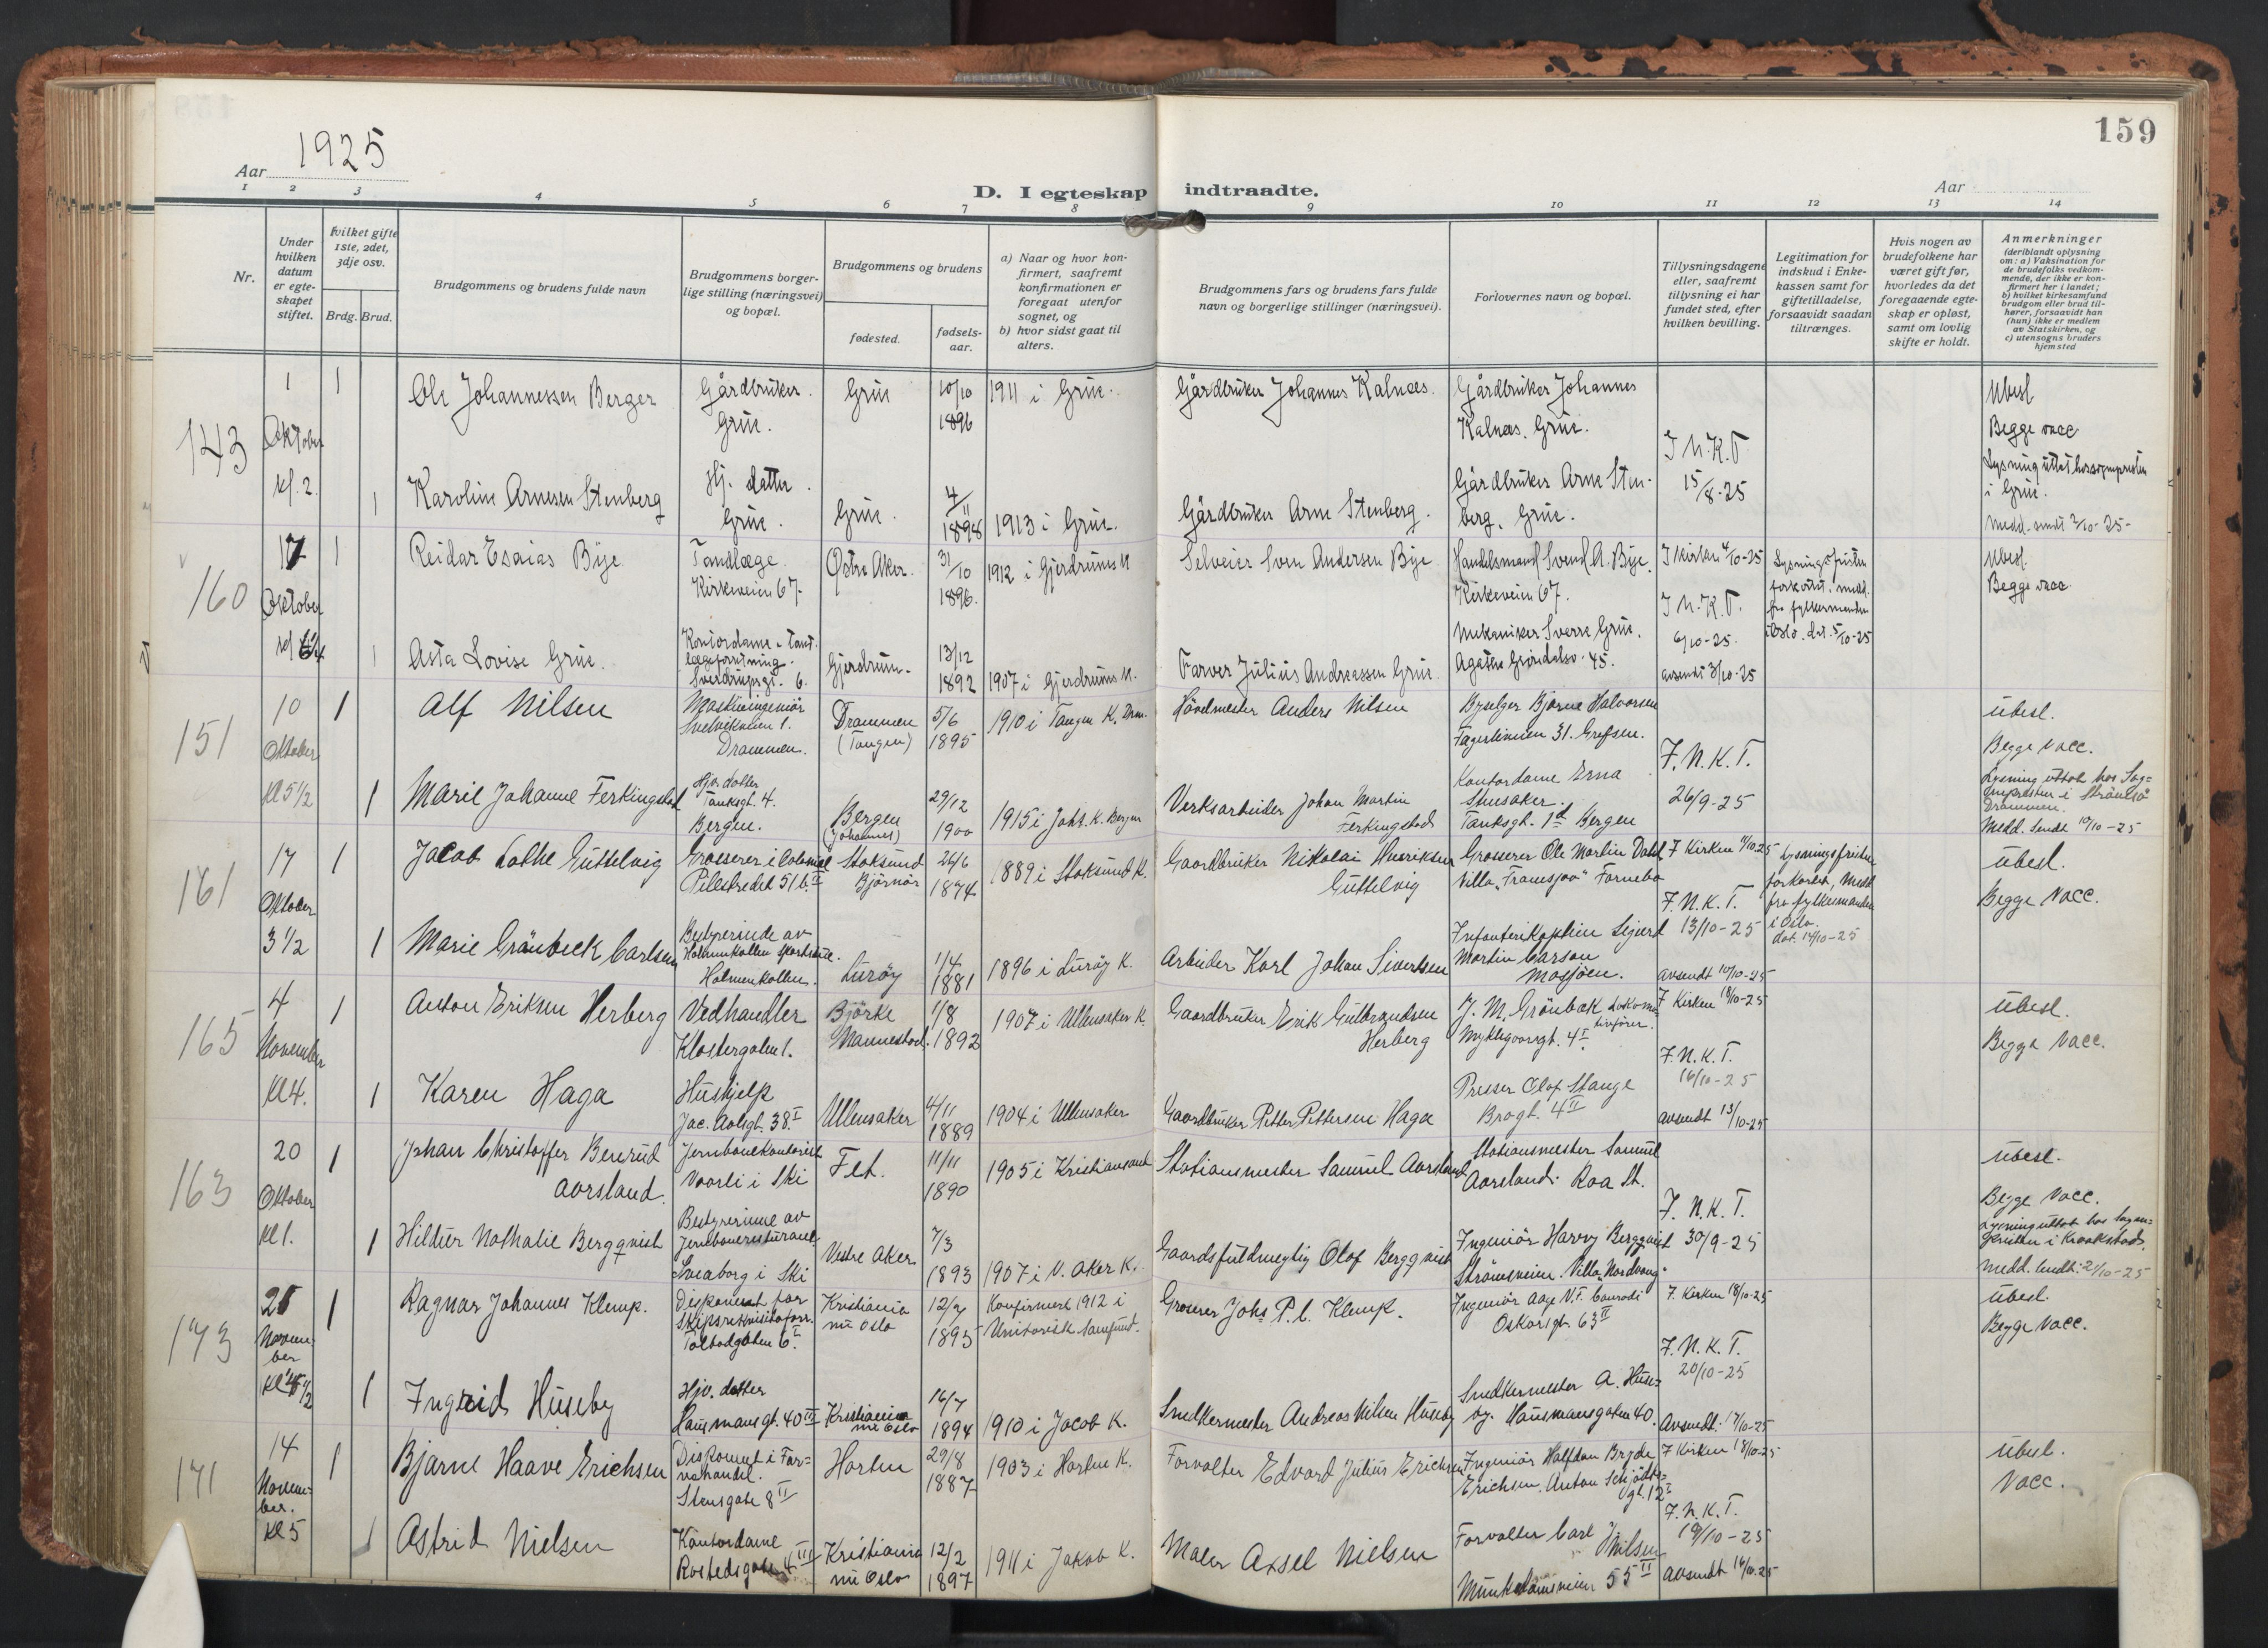 159
Aar 1925
D. I egteskap indtraadte.
Aar
1 2 3 4 5 6 7 8 9 10 11 12 13 14
Nr.
Under hvilken datum er egte-skapet stiftet.
Hvilket gifte 1ste, 2det, 3dje osv.
Brdg. Brud.
Brudgommens og brudens fulde navn
Brudgommens borger-lige stilling (næringsvei) og bopæl.
Brudgommens og brudens
fødested.
fødsels-aar.
a) Naar og hvor kon-firmert, saafremt konfirmationen er foregaat utenfor sognet, og
b) hvor sidst gaat til alters.
Brudgommens fars og brudens fars fulde navn og borgerlige stillinger (næringsvei).
Forlovernes navn og bopæl.
Tillysningsdagene eller, saafremt tillysning ei har fundet sted, efter hvilken bevilling.
Legitimation for indskud i Enke-kassen samt for giftetilladelse, forsaavidt saadan tiltrænges.
Hvis nogen av brudefolkene har været gift før, hvorledes da det foregaaende egte-skap er opløst, samt om lovlig skifte er holdt.
Anmerkninger
(deriblandt oplysning om: a) Vaksination for de brudefolks vedkom-mende, der ikke er kon-firmert her i landet; b) hvilket kirkesamfund brudgom eller brud til-hører, forsaavidt han (hun) ikke er medlem av Statskirken, og c) utensogns bruders hjemsted
143
1 Oktober kl. 2.
1 Ole Johannessen Berger
Gårdbruker. Grue.
Grue
10/10 1896
1911 i Grue.
Gårdbruker Johannes Kalnæs.
Gårdbruker Johannes Kalnæs. Grue.
I N.K.T 15/8-25
Ubesl
Begge vacc
Lysning uttat hos sognepresten i Grue.
Medd. sendt 2/10-25-
1 Karoline Arnesen Stenberg
Hj. datter. Grue.
Grue.
4/11 1898
1913 i Grue.
Gårdbruker Arne Stenberg.
Gårdbruker Arne Sten-berg, Grue.
160
17 Oktober kl 6 1/4
1 Reidar Esaias Bye
Tandlæge. Kirkeveien 67.
Østre Aker.
31/10 1896.
1912 i Gjerdrums K
Selveier Sven Andersen Bye
Handelsmand Svend A. Bye. Kirkeveien 67.
I Kirken 4/10-25
I N.K.T. 6/10-25.
avsendt 3/10-25
Lysningsfristen forkortet. medd. fra fylkesmanden i Oslo. dat. 5/10-25
Ubesl.
Begge vacc
1 Asta Lovise Grue.
Kontordame - tand-lægeforretning. Sverdrupsgt. 6.
Gjerdrum.
13/12 1892
1907 i Gjerdrums K.
Farver Julius Andreassen Grue.
Mekaniker Sverre Grue.
45.
151
10 Oktober Kl 5 1/2
1 Alf Nilsen
Maskiningeniör Svelvikveien 1. Drammen.
Drammen (Tangen)
5/6 1895
1910 i Tangen K. Drm.
Hövelmester Anders Nilsen
Byselger Bjarne Halvorsen Fagerlieveien 31. Grefsen.
F. N. K. T. 26/9-25
Ubesl.
Begge vacc.
Lysning uttat hos Sog-nepresten i Strömsö Drammen.
Medd. sendt 10/10-25
1 Marie Johanne Ferkingstad
Hjv. datter Tanksgt. 4. Bergen.
Bergen (Johannes)
29/12 1900
1915 i Johs. K. Bergen
Verksarbeider Johan Martin Ferkingstad
Kontordame Erna Tanksgt. 1d Bergen
161
17 Oktober 3 1/2
1 Jacob Lothe Guttelvig
Grosserer i Colonial Pilestredet 51 b. II
Stoksund Björnör
26/6 1874
1889 i Stoksund K.
Gaardbruker Nikolai Henriksen Guttelvig
Grosserer Ole Martin Dahl Villa "Framsjaa" Fornebo
F Kirken 11/10.25
F. N. K. T. 13/10-25
avsendt 10/10-25
Lysningsfristen forkortet, Medd. fra fylkesmanden i Oslo. dat. 14/10-25
Ubesl.
Begge vacc.
1 Marie Grönbeck Carlsen
Bestyrerinde av Holmenkollen Holmenkollen.
Luröy
1/4 1881
1896 i Luröy K.
Arbeider Karl Johan Sivertsen
Infanterikaptein Sigurd Martin Carson Mosjöen.
165
4 November Kl 4.
1 Anton Eriksen Herberg
Vedhandler Klostergaten 1.
Björke Mannestad.
1/8 1892
1907 i Ullensaker K.
Gaardbruker Erik Gulbrandsen Herberg
J. M. Grönbæk Lokomo-tivfører. Myklegaardgt. 4 I
F Kirken 18/10-25
F. N. K. T. 16/10-25
avsendt 13/10-25
Ubesl.
Begge vacc.
1 Karen Haga
Hushjelp Jac. Aalsgt. 38. I
Ullensaker
4/11 1889
1904 i Ullensaker
Gaardbruker Petter Pettersen Haga
Presser Olaf Stange Brogt. 4 II
163
20 Oktober Kl 1.
1 Johan Christoffer Benrud Aorsland.
Jernbanekontorist Vaarli i Ski
Fet.
11/11 1890
1905 i Kristiansand
Stationsmester Samuel Aorsland
Stationsmester Samuel Aorsland. Roa St.
F. N. K. T. 30/9-25
Ubesl.
Begge vacc.
Lysning uttat hos Sogne-presten i Kraakstad.
Medd. sendt: 21/10-25
1 Hildur Nathalie Bergqvist
Bestyrerinne av Jernbanerestaurant Sveaborg i Ski
Vestre Aker
7/3 1893
1907 i V. Aker K.
Gaardsfuldmegtig Olof Bergqvist
Ingeniör Harry Bergqvist Strömsveien. Villa "Nordvang"
173
21 Novem-ber
1 Ragnar Johannes Klemp.
Disponent for Skipsrekvisitaforr. Tolbodgaten 6. I
Kristiania nu Oslo
12/7 1895
Konfirmert 1912 i Unitarisk Samfund.
Grosserer Johs. P. C. Klemp.
Ingeniör Aage V. F. Conradi Oskarsgt. 63 II
F. Kirken 18/10-25
F. N. K. T. 20/10-25
Avsendt: 17/10-25
Ubesl.
Begge vacc.
1 Ingrid Huseby
Hjv. datter Hausmansgt. 40 III
Kristiania nu Oslo
16/7 1894
1910 i Jacob K.
Snedkermester Andreas Nilsen Huseby
Snedkermester A. Huse-by. Hausmansgaten 40.
171
14 Novem-ber. Kl 5
1 Bjarne Haave Erichsen
Disponent i Far-vehandel. Stensgate 8 II
Horten
29/8 1887
1903 i Horten K.
Forvalter Edvard Julius Erichsen
Ingeniör Halfdan Bryde Erichsen. Anton Schjödts-gt. 12 I
F Kirken 18/10-25
F. N. K. T. 19/10-25
Avsendt 16/10-25
Ubesl.
Vacc.
1 Astrid Nielsen
Kontordame Rostedsgate 4 III
Kristiania nu Oslo
12/2 1897
1911 i Jakob K.
Maler Axsel Nielsen
Forvalter Carl Nilsen Munkedamsveien 55 II